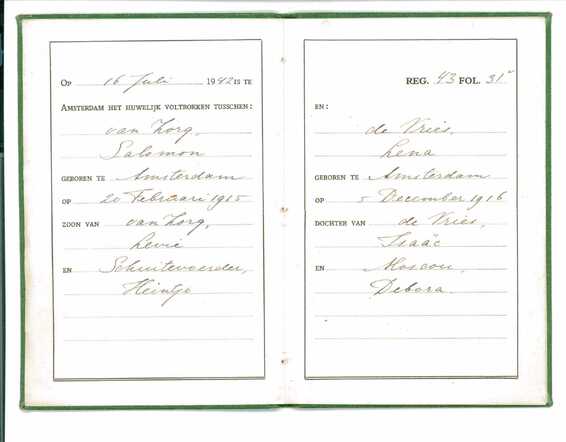 OP 16 Juli 1942 IS TE
AMSTERDAM HET HUWELIJK VOLTROKKEN TUSSCHEN:
van Zorg,
Salomon
GEBOREN TE Amsterdam
OP 20 Februari 1915
ZOON VAN van Zorg,
Levie
EN Schuitevoerder,
Heintje
REG. 43 FOL. 31v
EN:
de Vries,
Lena
GEBOREN TE Amsterdam
OP 5 December 1916
DOCHTER VAN de Vries,
Isaäc
EN Moscou,
Debora.